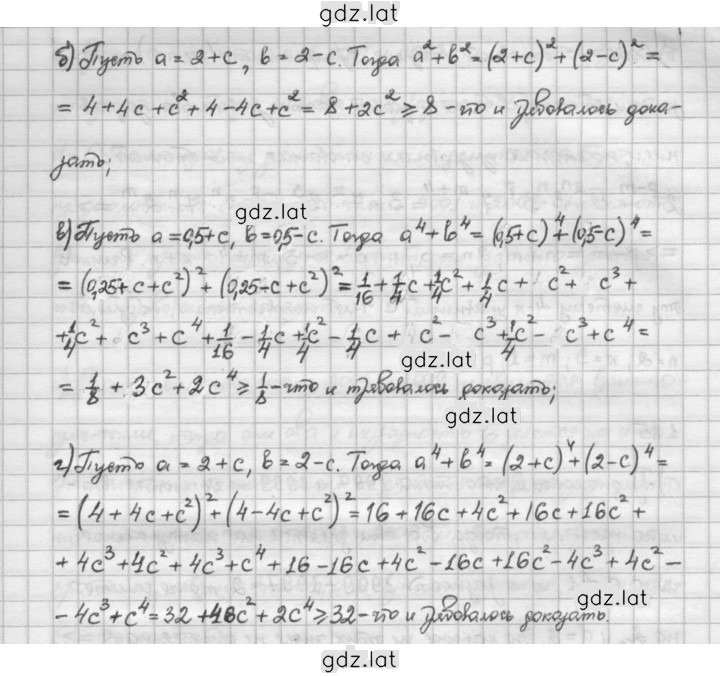 gdz.lat
б) Пусть a = 2+c, b = 2-c. Тогда a² + b² = (2+c)² + (2-c)² =
= 4 + 4c + c² + 4 - 4c + c² = 8 + 2c² ≥ 8 - что и требовалось дока-
зать;
gdz.lat
в) Пусть a = 0,5+c, b = 0,5-c. Тогда a⁴ + b⁴ = (0,5+c)⁴ + (0,5-c)⁴ =
= (0,25 + c + c²)² + (0,25 - c + c²)² = 1/16 + 1/4c + 1/4c² + 1/4c + c² + c³ +
+ 1/4c² + c³ + c⁴ + 1/16 - 1/4c + 1/4c² - 1/4c + c² - c³ + 1/4c² - c³ + c⁴ =
gdz.lat
= 1/8 + 3c² + 2c⁴ ≥ 1/8 - что и требовалось доказать;
gdz.lat
г) Пусть a = 2+c, b = 2-c. Тогда a⁴ + b⁴ = (2+c)⁴ + (2-c)⁴ =
= (4 + 4c + c²)² + (4 - 4c + c²)² = 16 + 16c + 4c² + 16c + 16c² +
+ 4c³ + 4c² + 4c³ + c⁴ + 16 - 16c + 4c² - 16c + 16c² - 4c³ + 4c² -
gdz.lat
- 4c³ + c⁴ = 32 + 48c² + 2c⁴ ≥ 32 - что и требовалось доказать.
gdz.lat